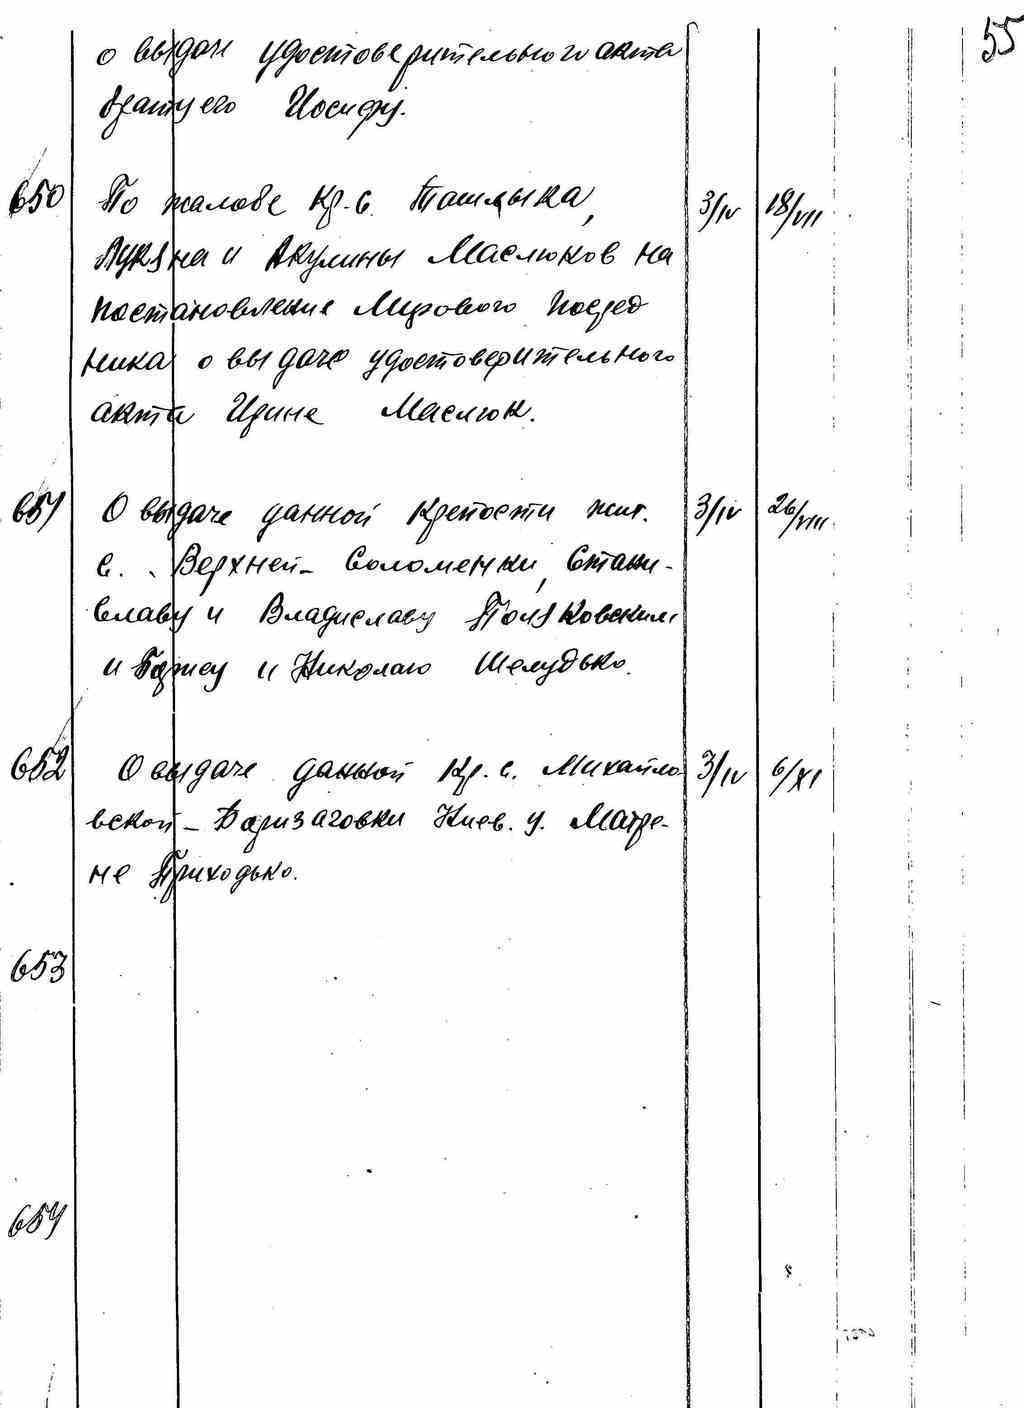 55
о выдачи удостоверительного акта
брату его Иосифу.
650 По жалобе кр. с. Ташлыка, 3/IV 18/VII
Лукяна и Акулины Маслюков на
постановление Мирового Посред
ника о выдаче удостоверительного
акта Ирине Маслюк.
651 О выдаче данной крепости жит. 3/IV 26/VIII
с. Верхней - Соломенки, Стани-
славу и Владиславу Поляковским
и и Николаю Шелудько.
652 О выдаче данной кр. с. Михайло- 3/IV 6/XI
вской - Борзаговки Киев. у. Матре-
не Приходько.
653
654